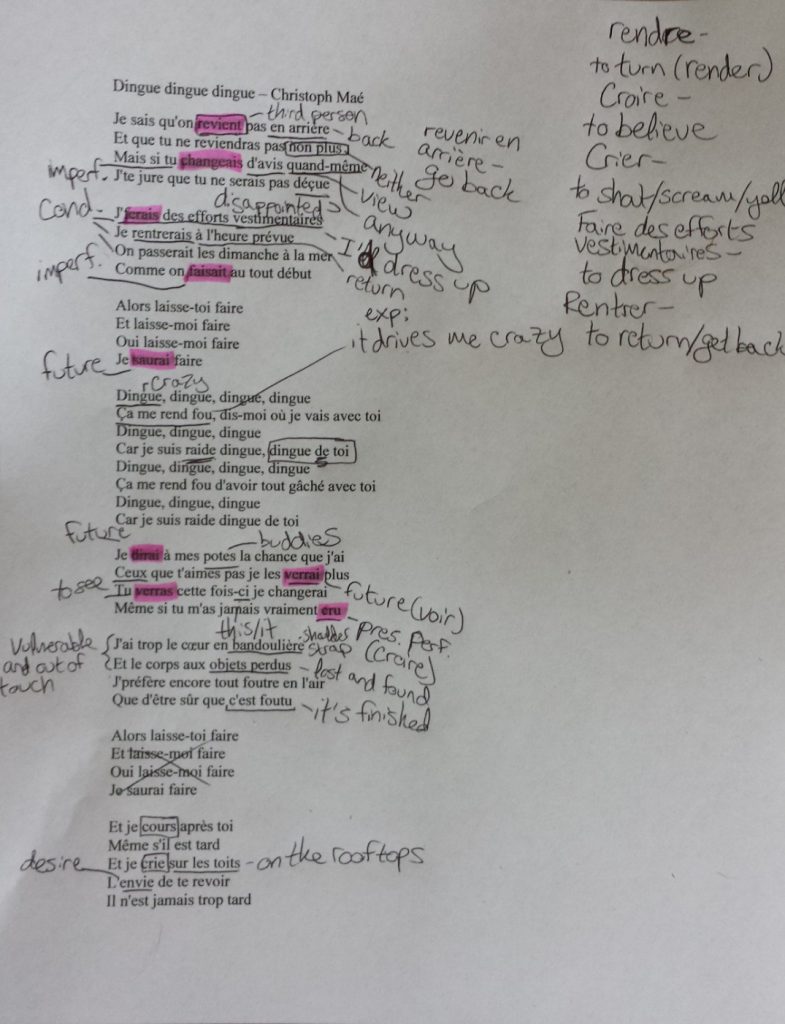 Dingue dingue dingue – Christoph Maé
third person
Je sais qu'on revient pas en arrière - back
Et que tu ne reviendras pas non plus
neither
Mais si tu changeais d'avis quand-même
view
anyway
imperf. J'te jure que tu ne serais pas déçue
disappointed
Cond - J'ferais des efforts vestimentaires
I'd dress up
Je rentrerais à l'heure prévue
return
On passerait les dimanche à la mer
imperf. Comme on faisait au tout début
Alors laisse-toi faire
Et laisse-moi faire
Oui laisse-moi faire
future Je saurai faire
exp:
it drives me crazy
crazy
Dingue, dingue, dingue, dingue
Ça me rend fou, dis-moi où je vais avec toi
Dingue, dingue, dingue
Car je suis raide dingue, dingue de toi
Dingue, dingue, dingue, dingue
Ça me rend fou d'avoir tout gâché avec toi
Dingue, dingue, dingue
Car je suis raide dingue de toi
future
buddies
Je dirai à mes potes la chance que j'ai
Ceux que t'aimes pas je les verrai plus
to see Tu verras cette fois-ci je changerai
future (voir)
Même si tu m'as jamais vraiment cru
pres. perf.
(Croire)
this/it
strap
Vulnerable
and out of
touch
J'ai trop le cœur en bandoulière
Et le corps aux objets perdus - lost and found
J'préfère encore tout foutre en l'air
Que d'être sûr que c'est foutu - it's finished
Alors laisse-toi faire
Et laisse-moi faire
Oui laisse-moi faire
Je saurai faire
Et je cours après toi
Même s'il est tard
Et je crie sur les toits - on the rooftops
desire L'envie de te revoir
Il n'est jamais trop tard
revenir en
arrière -
go back
rendre -
to turn (render)
Croire -
to believe
Crier -
to shat/scream/yell
Faire des efforts
vestimentaires -
to dress up
Rentrer -
to return/get back